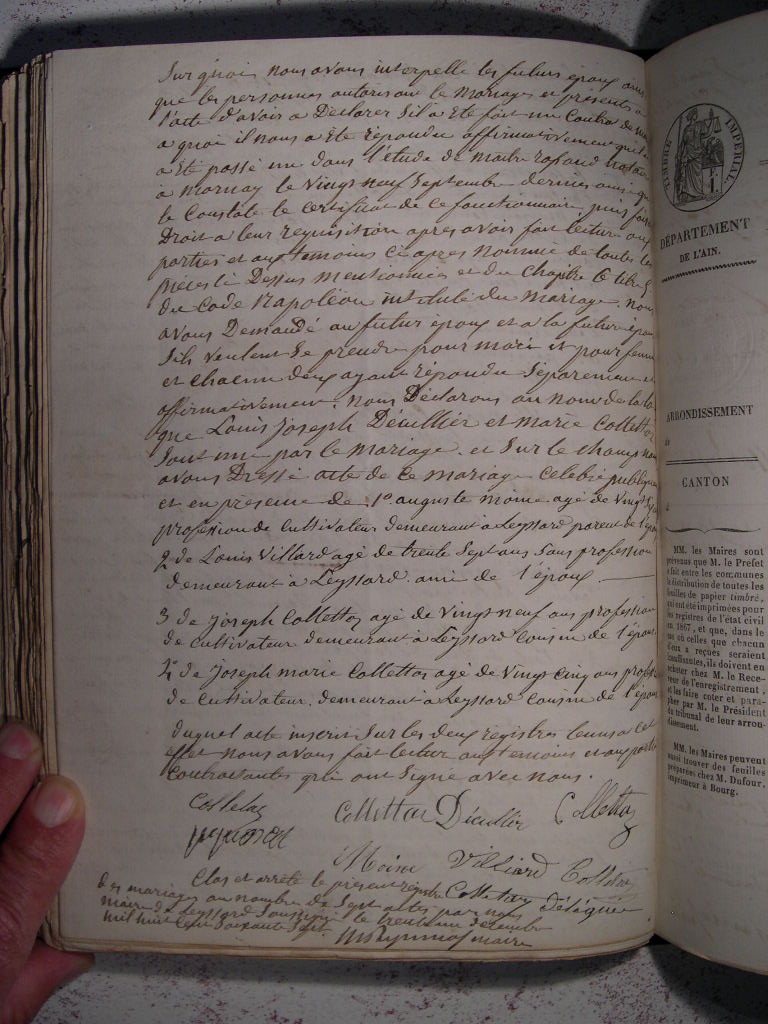 Sur quoi nous avons interpellé les futurs époux ainsi
que les personnes autorisant le mariage et présents à
l'acte d'avoir à Déclarer S'il a Eté fait un Contrat de
a quoi il nous a Eté répondu affirmativement qu'il
a Eté passé un dans l'étude de maitre notaire
à Mornay le vingt neuf Septembre dernier ainsi que
le Constate le certificat de ce fonctionnair puis
Droit a leur requisition apres avoir fait lecture aux
parties et aux temoins ci apres Nommé de toutes les
pieces ci Dessus mentionnées et du chapitre 6 titre 5
du Code Napoléon intitulé du Mariage. nous
avons Demandé au futur époux et a la future épouse
S'ils veulent Se prendre pour mari et pour femme
et chacun deux ayant répondu Séparement et
affirmativement, nous Déclarons au nom de la loi
que Louis joseph Décullier et marie Collettaz
Sont unie par le mariage. et Sur le champ nous
avons Dressé acte de ce mariage celebré publique
et en présence de 1º auguste moine agé de vingt
profession de Cultivateur demeurant a Leyssard parent de
2 de Louis Villard agé de trente Sept ans Sans profession
demeurant à Leyssard ami de l'époux
3 de joseph Collettaz agé de vingt neuf ans profession
de cultivateur demeurant à Leyssard cousin de
4º de Joseph marie Collettaz agé de vingt cinq ans
de Cultivateur. demeurant a Leyssard cousin de
duquel acte inscrit Sur les deux registres tenus a cet
effet nous avons fait lecture aux temoins et aux parties
Contractantes qui ont Signé avec nous.
Collettaz Décullier Collettaz
Moine Villard Collettaz
Clos et arrêté le présent régistre Collettaz délégué
des mariages au nombre de Sept actes par nous
maire de Leyssard Soussigné le trente un decembre
mil huit cent soixante Sept.
maire
TIMBRE IMPÉRIAL.
DÉPARTEMENT
DE L'AIN.
ARRONDISSEMENT
de
CANTON
d
MM. les Maires sont
prévenus que M. le Préfet
a fait entre les communes
la distribution de toutes les
feuilles de papier timbré,
qui ont été imprimées pour
les registres de l'état civil
de 1867, et que, dans le
cas où celles que chacun
d'eux a reçues seraient
insuffisantes, ils doivent en
acheter chez M. le Rece-
veur de l'enregistrement,
et les faire coter et para-
pher par M. le Président
du tribunal de leur arron-
dissement.
MM. les Maires peuvent
aussi trouver des feuilles
préparées chez M. Dufour,
imprimeur à Bourg.